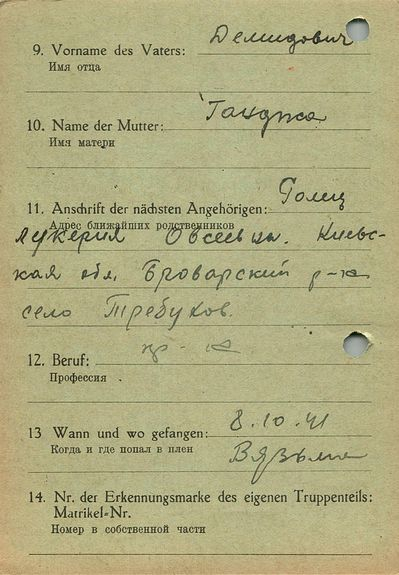 9. Vorname des Vaters: Демидович
Имя отца
10. Name der Mutter: Ганджа
Имя матери
11. Anschrift der nächsten Angehörigen: Голец
Адрес ближайших родственников
Лукерия Овсеевна. Киевс-
кая обл. Броварский р-н
село Требухов.
12. Beruf: кр-н
Профессия
13 Wann und wo gefangen: 8.10.41
Когда и где попал в плен Вязьма
14. Nr. der Erkennungsmarke des eigenen Truppenteils:
Matrikel-Nr.
Номер в собственной части